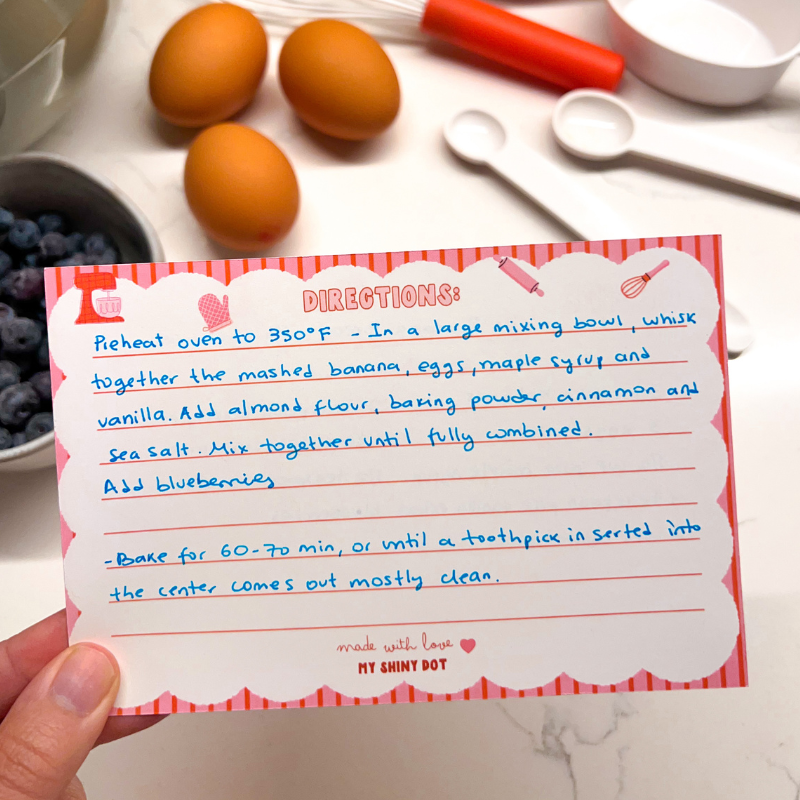 DIRECTIONS:
Preheat oven to 350°F - In a large mixing bowl, whisk
together the mashed banana, eggs, maple syrup and
vanilla. Add almond flour, baking powder, cinnamon and
sea salt. Mix together until fully combined.
Add blueberries
-Bake for 60-70 min, or until a toothpick in serted into
the center comes out mostly clean.
made with love
MY SHINY DOT